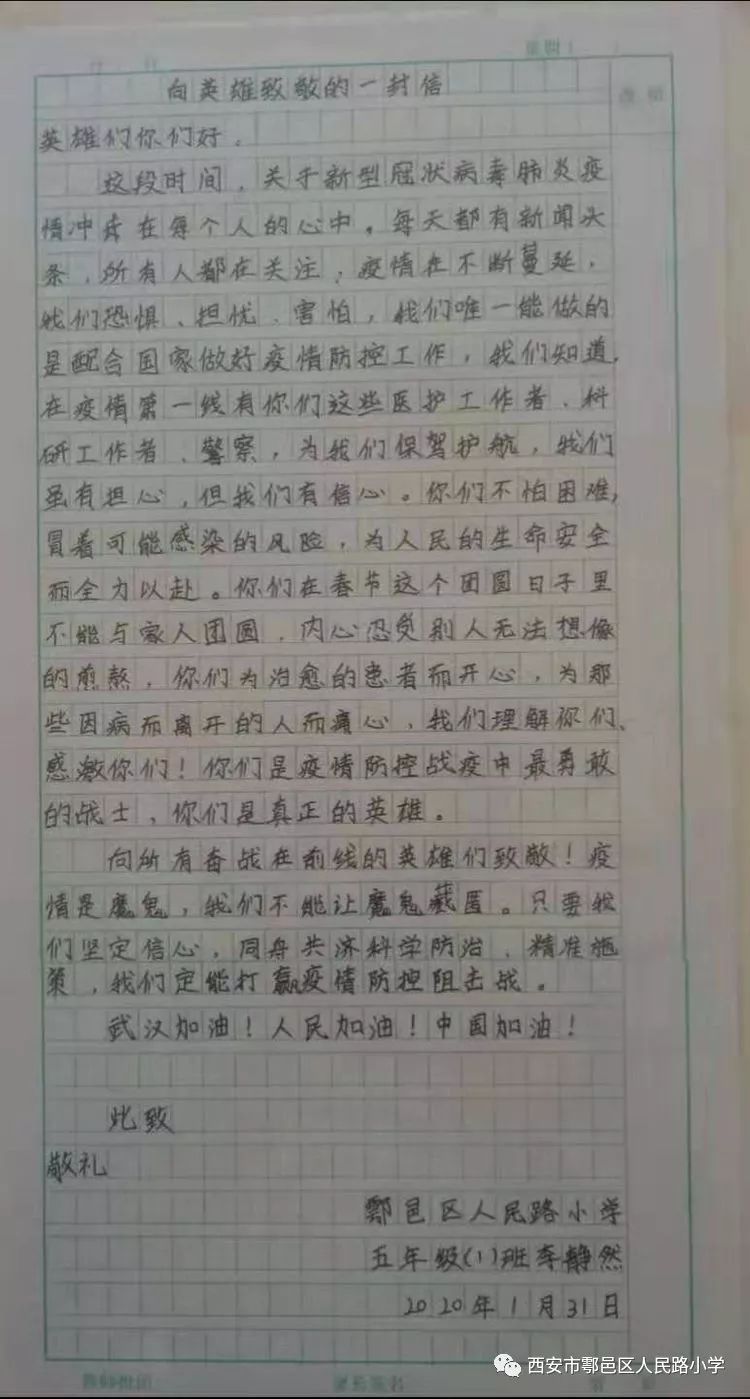 向英雄致敬的一封信
英雄们你们好。
这段时间，关于新型冠状病毒肺炎疫
情冲击在每个人的心中。每天都有新闻头
条，所有人都在关注，疫情在不断蔓延，
我们恐惧、担忧、害怕，我们唯一能做的
是配合国家做好疫情防控工作，我们知道，
在疫情第一线有你们这些医护工作者、科
研工作者、警察，为我们保驾护航，我们
虽有担心，但我们有信心。你们不怕困难，
冒着可能感染的风险，为人民的生命安全
而全力以赴。你们在春节这个团圆日子里
不能与家人团圆，内心忍受别人无法想像
的煎熬，你们为治愈的患者而开心，为那
些因病而离开的人而痛心，我们理解你们、
感激你们！你们是疫情防控战疫中最勇敢
的战士，你们是真正的英雄。
向所有奋战在前线的英雄们致敬！疫
情是魔鬼，我们不能让魔鬼藏匿。只要我
们坚定信心，同舟共济科学防治，精准施
策，我们定能打赢疫情防控阻击战。
武汉加油！人民加油！中国加油！
此致
敬礼
鄠邑区人民路小学
五年级(1)班李静然
2020年1月31日
西安市鄠邑区人民路小学